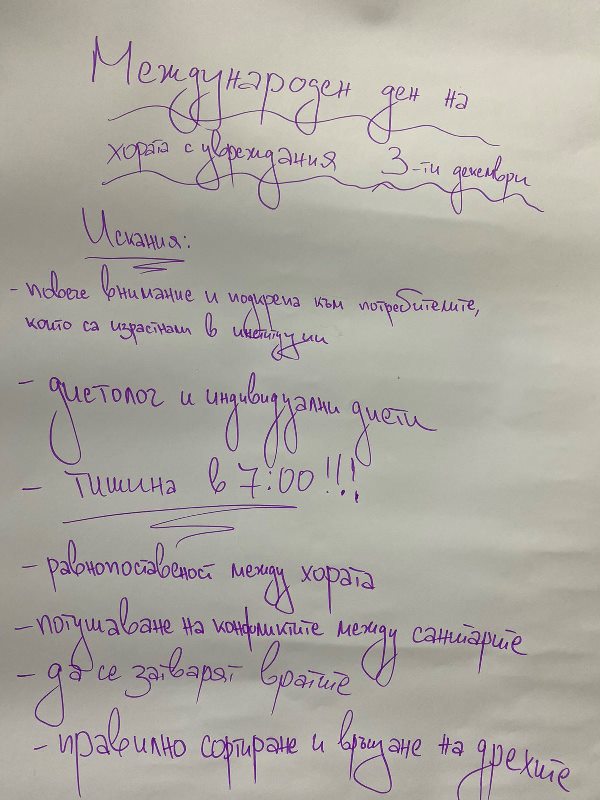 Международен ден на
хората с увреждания 3-ти декември
Искания:
- повече внимание и подкрепа към потребителите,
които са израстнали в институции
- диетолог и индивидуални диети
- тишина в 7:00!!!
- равнопоставеност между хората
- потушаване на конфликтите между санитарите
- да се затварят вратите
- правилно сортиране и връщане на дрехите